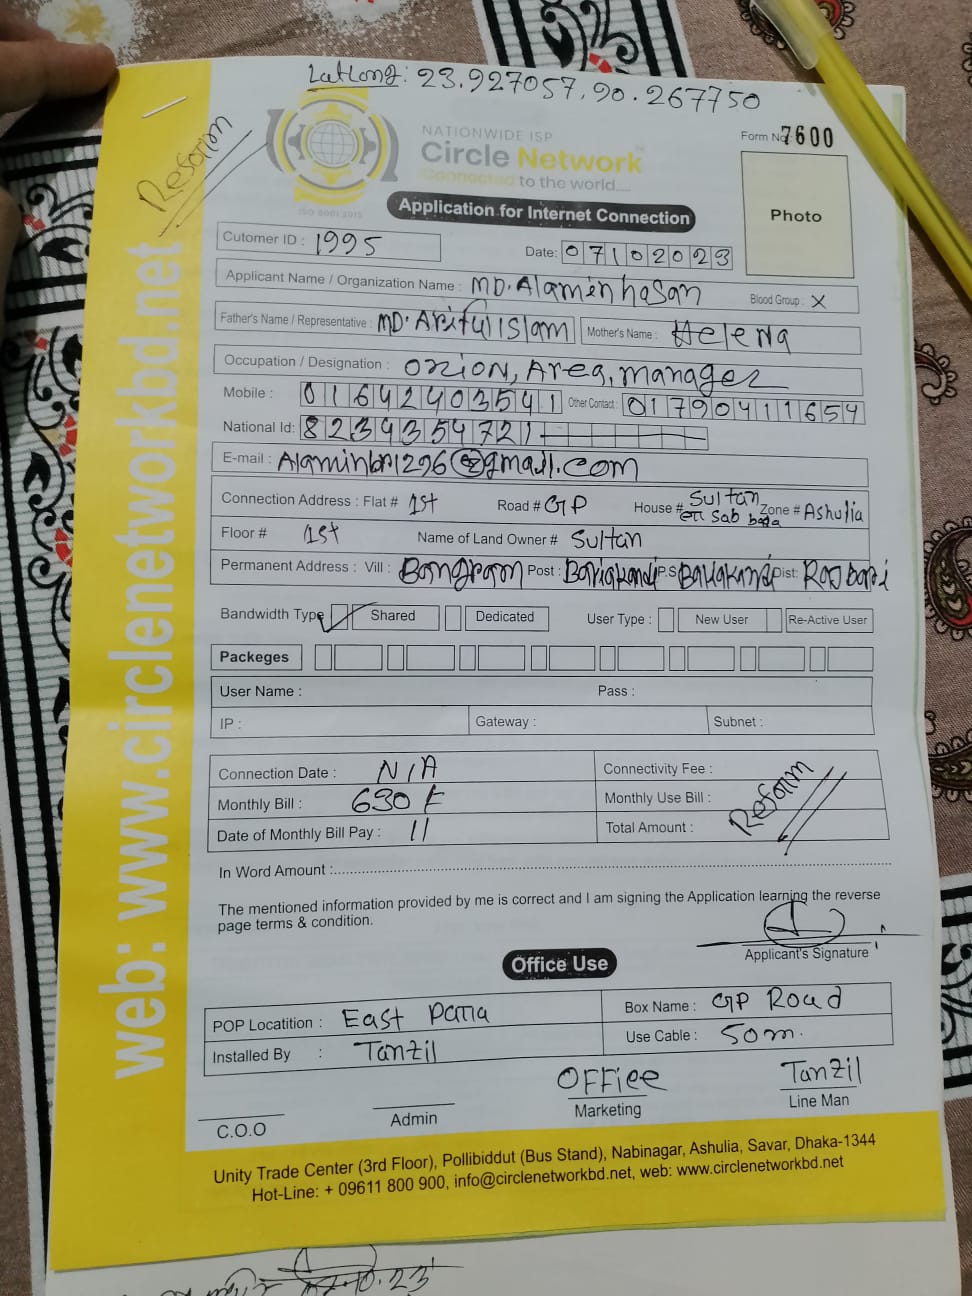 Latlong: 23.927057, 90.267750
NATIONWIDE ISP
Form No: 7600
Circle Network
Connected to the world....
ISO 9001:2015
Reform
Application for Internet Connection
Photo
Cutomer ID : 1995
Date: 07102023
Applicant Name / Organization Name : MD. Alamin hasan
Blood Group : X
Father's Name / Representative : MD. Ariful islam
Mother's Name : Helena
Occupation / Designation : Orion, Area, manager
Mobile : 01642403541
Other Contact : 01790411654
National Id: 8234354721
E-mail : @gmail.com
Connection Address : Flat # 1st Road # GP House # Sultan Sab Zone # Ashulia
Floor # 1st Name of Land Owner # Sultan
Permanent Address : Vill : Bongram Post : P.S Dist:
Bandwidth Type Shared Dedicated User Type : New User Re-Active User
Packeges
User Name : Pass :
IP : Gateway : Subnet :
Connection Date : N/A
Connectivity Fee :
Monthly Bill : 630
Monthly Use Bill :
Date of Monthly Bill Pay : 11
Total Amount :
Reform
In Word Amount :
The mentioned information provided by me is correct and I am signing the Application learning the reverse
page terms & condition.
Applicant's Signature
Office Use
POP Locatition : East
Box Name : GP Road
Installed By : Tanzil
Use Cable : 50m.
OFFice
Tanzil
C.O.O
Admin
Marketing
Line Man
Unity Trade Center (3rd Floor), Pollibiddut (Bus Stand), Nabinagar, Ashulia, Savar, Dhaka-1344
Hot-Line: + 09611 800 900, info@circlenetworkbd.net, web: www.circlenetworkbd.net
web: www.circlenetworkbd.net
.10.23